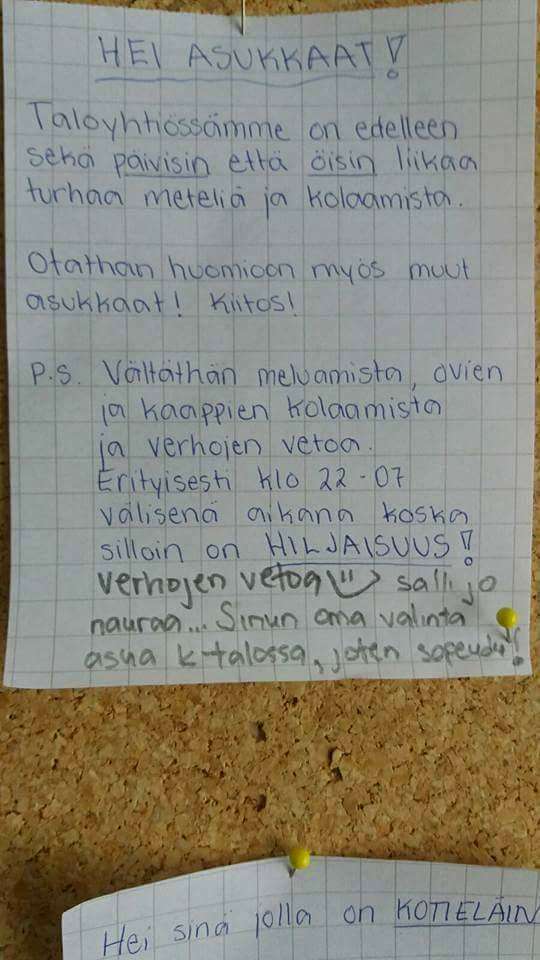 HEI ASUKKAAT!
Taloyhtiössämme on edelleen
sekä päivisin että öisin liikaa
turhaa meteliä ja kolaamista.
Otathan huomioon myös muut
asukkaat! Kiitos!
P.S. Vältäthän meluamista, ovien
ja kaappien kolaamista
ja verhojen vetoa.
Erityisesti klo 22-07
välisenä aikana koska
silloin on HILJAISUUS!
verhojen vetoa salli jo
nauraa... Sinun oma valinta
asua k-talossa, joten sopeudu!
Hei sinä jolla on KOTIELÄIN